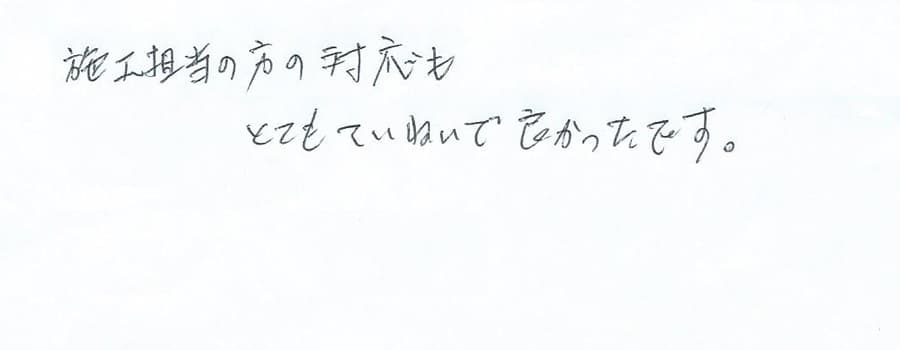 施工担当の方の対応も
とてもていねいで良かったです。